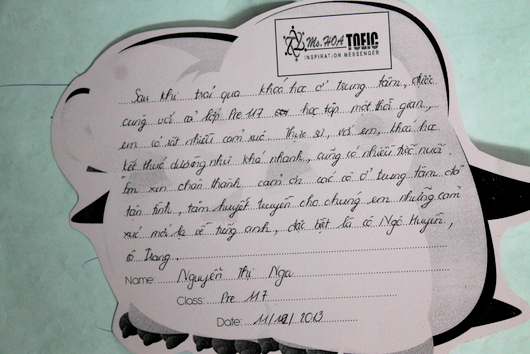 Ms. HOA TOEIC
INSPIRATION MESSENGER
Sau khi trải qua khoá học ở trung tâm, được
cùng với cả lớp Pre 117 học tập một thời gian,
em có rất nhiều cảm xúc. Thực sự, với em, khoá học
kết thúc dường như khá nhanh, cũng có nhiều tiếc nuối.
Em xin chân thành cảm ơn các cô ở trung tâm đã
tận tình, tâm huyết truyền cho chúng em những cảm
xúc mới lạ về tiếng anh, đặc biệt là cô Ngô Huyền,
cô Trang.
Name: Nguyễn Thị Nga
Class: Pre 117
Date: 11/12/2013